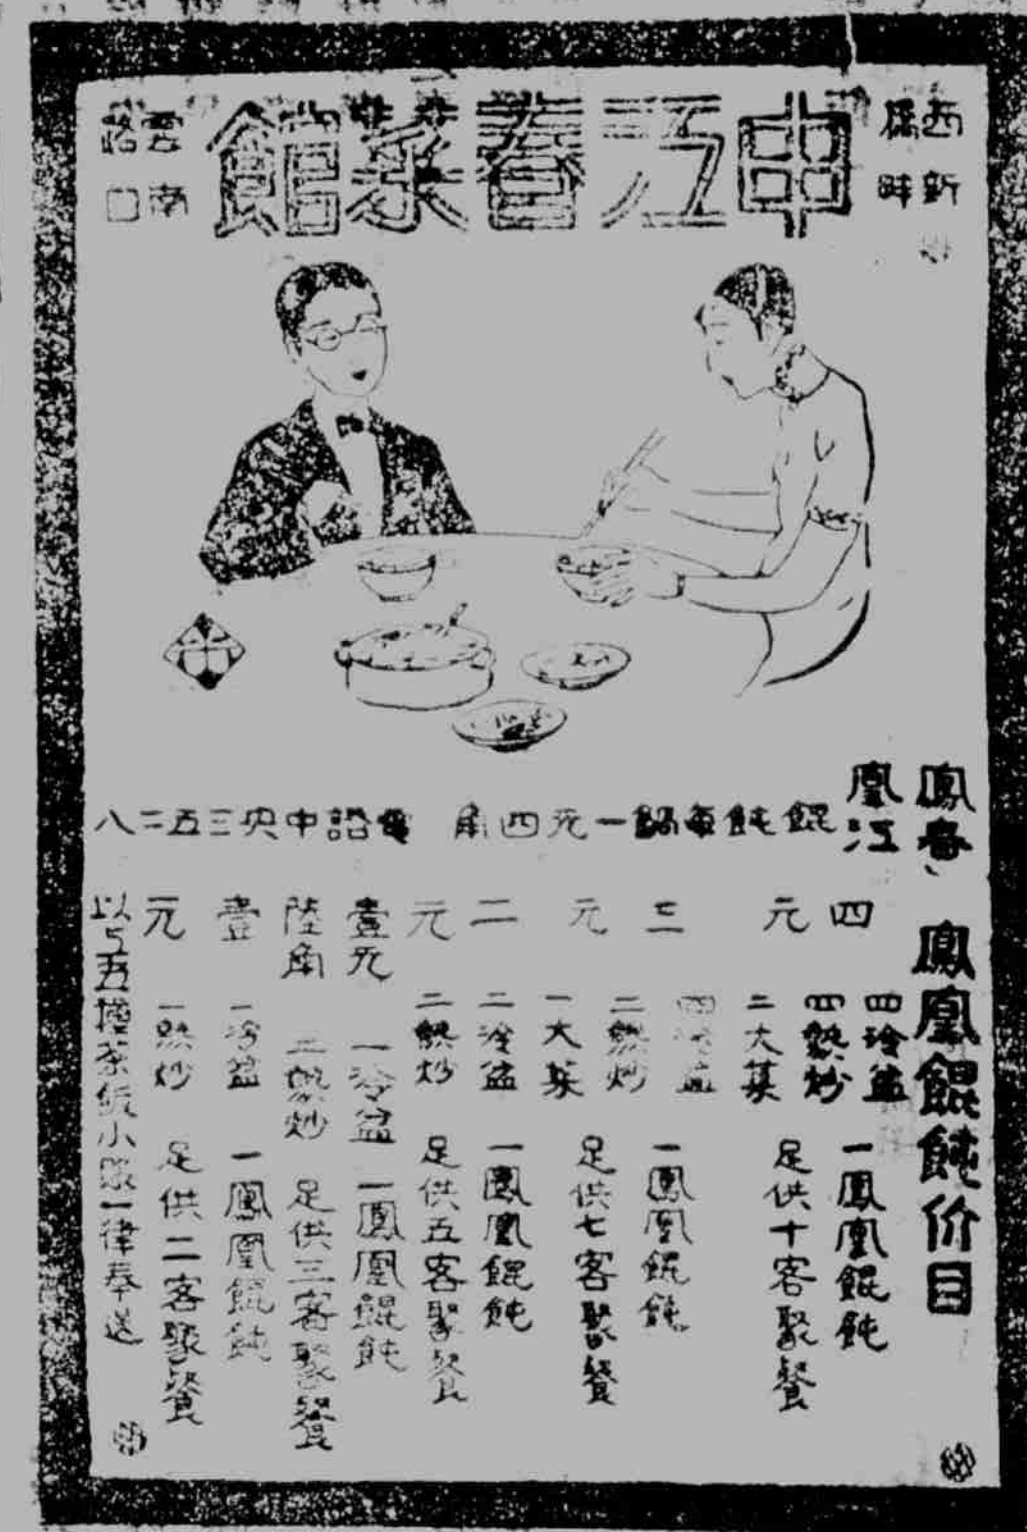 西新
橋畔
中江春菜館
雲南
路口
鳳春、
凰江
鳳凰餛飩价目
餛飩每鍋一元四角
電話中央三五二八
四元
四冷盆
四熱炒
二大菜
一鳳凰餛飩
足供十客聚餐
三元
四冷盆
二熱炒
一大菜
一鳳凰餛飩
足供七客聚餐
二元
二冷盆
二熱炒
一鳳凰餛飩
足供五客聚餐
壹元
陸角
一冷盆
二熱炒
一鳳凰餛飩
足供三客聚餐
壹元
一冷盆
一熱炒
一鳳凰餛飩
足供二客聚餐
以上五種茶飯小賬一律奉送